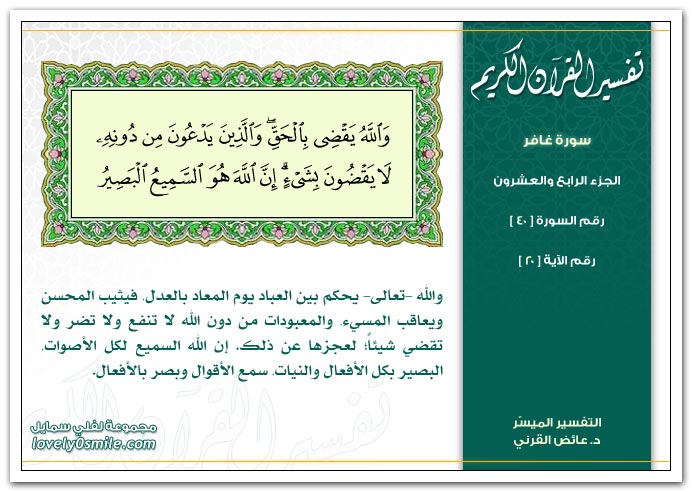 تفسير القرآن الكريم
سورة غافر
الجزء الرابع والعشرون
رقم السورة [ ٤٠ ]
رقم الآية [ ٢٠ ]
وَٱللَّهُ يَقْضِى بِٱلْحَقِّ ۖ وَٱلَّذِينَ يَدْعُونَ مِن دُونِهِۦ
لَا يَقْضُونَ بِشَىْءٍ ۗ إِنَّ ٱللَّهَ هُوَ ٱلسَّمِيعُ ٱلْبَصِيرُ
والله -تعالى- يحكم بين العباد يوم المعاد بالعدل، فيثيب المحسن
ويعاقب المسيء، والمعبودات من دون الله لا تنفع ولا تضر ولا
تقضي شيئاً؛ لعجزها عن ذلك، إن الله السميع لكل الأصوات،
البصير بكل الأفعال والنيات، سمع الأقوال وبصر بالأفعال.
التفسير الميسّر
د. عائض القرني
مجموعة لفلي سمايل
lovely0smile.com
تفسير القرآن الكريم